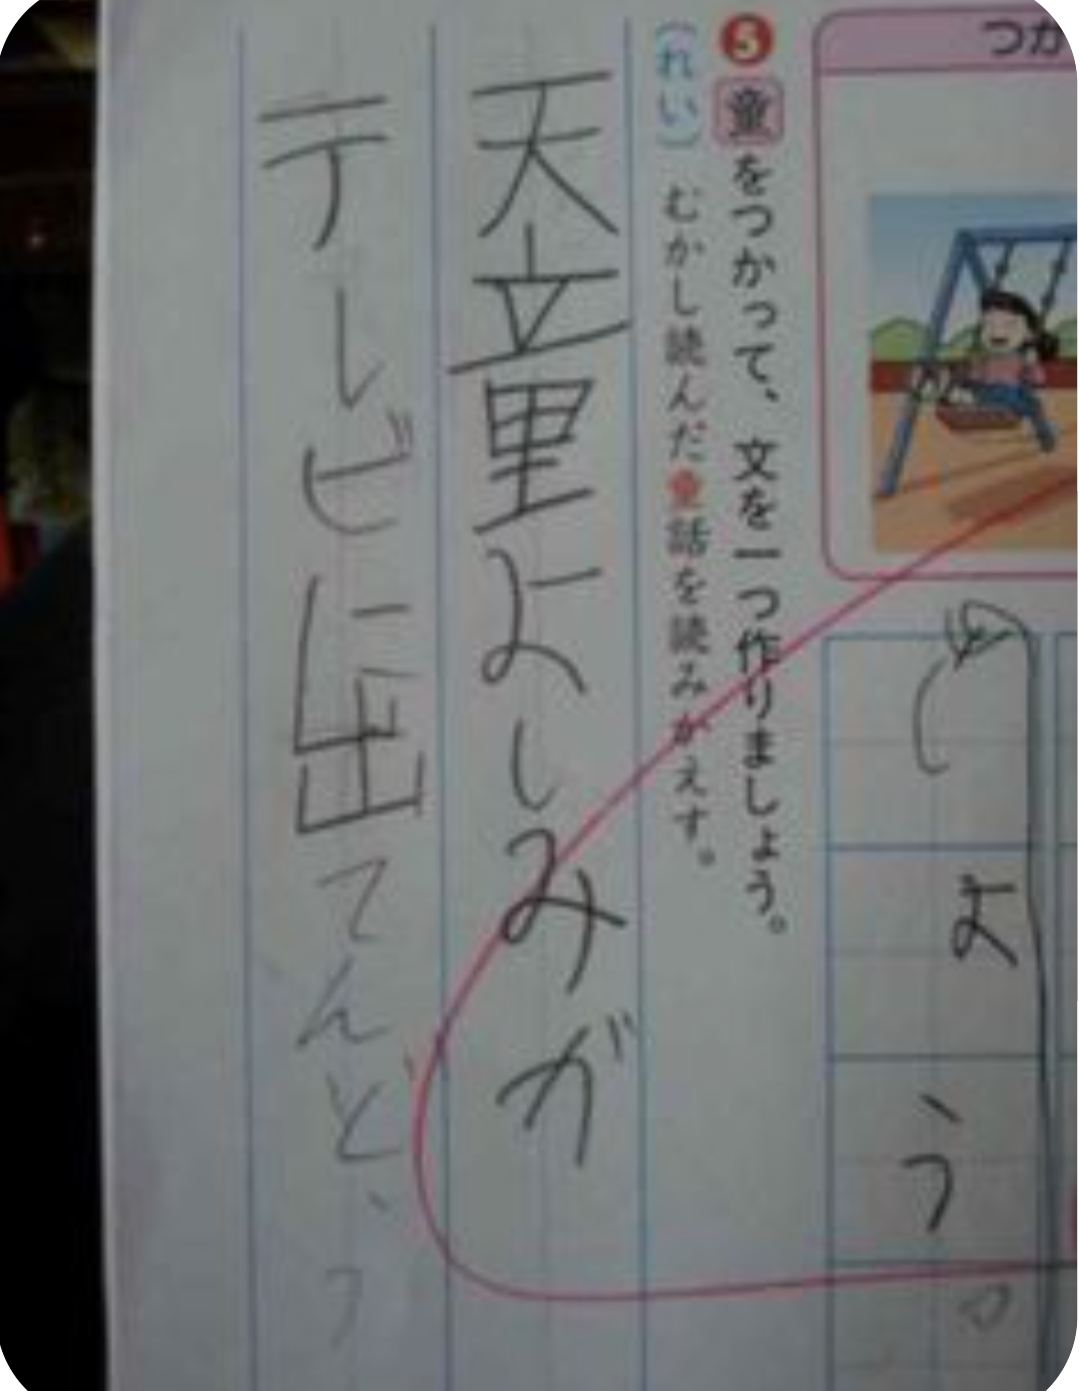 つか
しょう
5 童をつかって、文を一つ作りましょう。
(れい) むかし読んだ童話を読みかえす。
天童よしみが
テレビに出てんどう